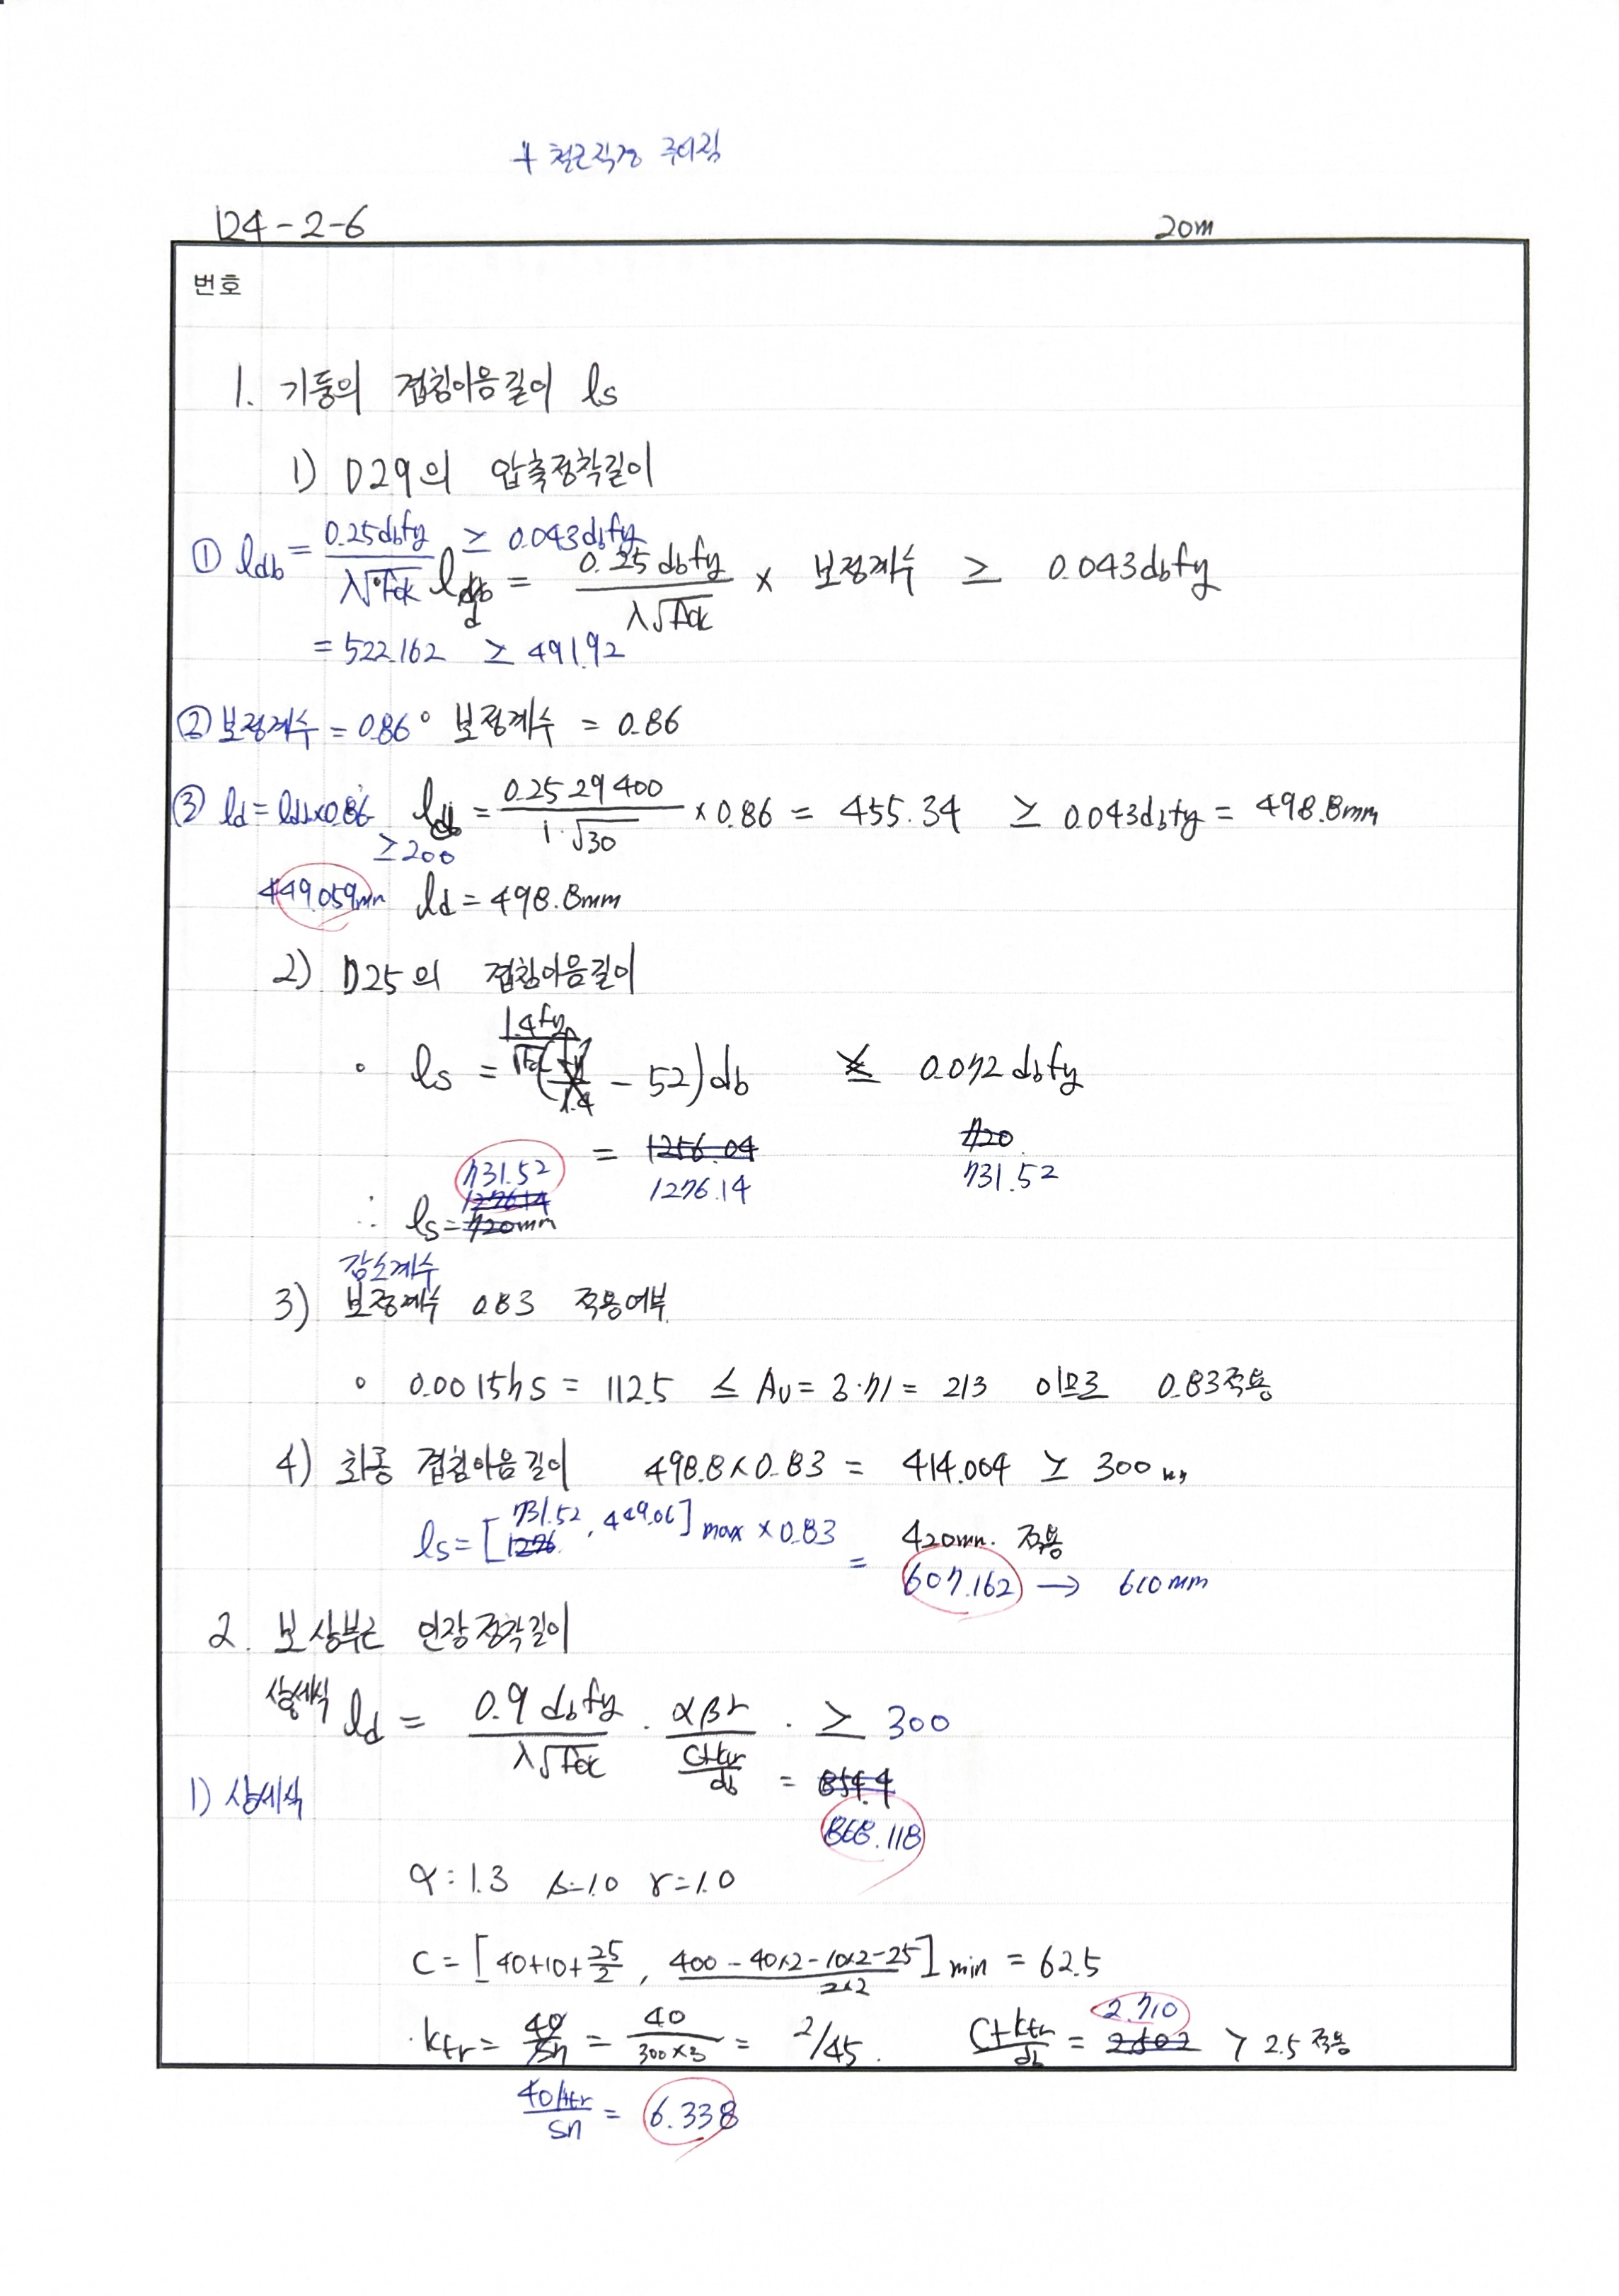 + 철근직경 주어짐
124-2-6 20m
번호
1. 기둥의 겹침이음길이 ls
1) D29의 압축정착길이
① ldb = 0.25dbfy / λ√fck ≥ 0.043dbfy
ld = 0.25dbfy / λ√fck × 보정계수 ≥ 0.043dbfy
= 522.162 ≥ 491.92
② 보정계수 = 0.86
∘ 보정계수 = 0.86
③ ld = ldb×0.86 ≥200
ld = 0.25 29 400 / 1·√30 × 0.86 = 455.34 ≥ 0.043dbfy = 498.8mm
449.059mm
ld = 498.8mm
2) D25의 겹침이음길이
∘ ls = (1.4fy / √fck - 52)db ≤ 0.072dbfy
= 1256.04 720
1276.14 731.52
∴ ls = 720mm 1276.14 731.52
감소계수
3) 보정계수 0.83 적용여부
∘ 0.0015hs = 112.5 ≤ Av = 3·71 = 213 이므로 0.83적용
4) 최종 겹침이음길이 498.8×0.83 = 414.004 ≥ 300
420mm. 적용
ls = [1276 731.52, 449.06]max × 0.83 = 607.162 → 610mm
2. 보 상부근 인장정착길이
상세식 ld = 0.9dbfy / λ√fck · αβγ / (C+ktr / db) · ≥ 300
1) 상세식
= 854.4
868.118
α : 1.3 β=1.0 γ=1.0
C = [40+10+25/2 , 400-40×2-10×2-25 / 2×2]min = 62.5
·ktr = 40/sn = 40 / 300×3 = 2/45. C+ktr / db = 2.502 2.710 > 2.5 적용
40Atr / sn = 6.338